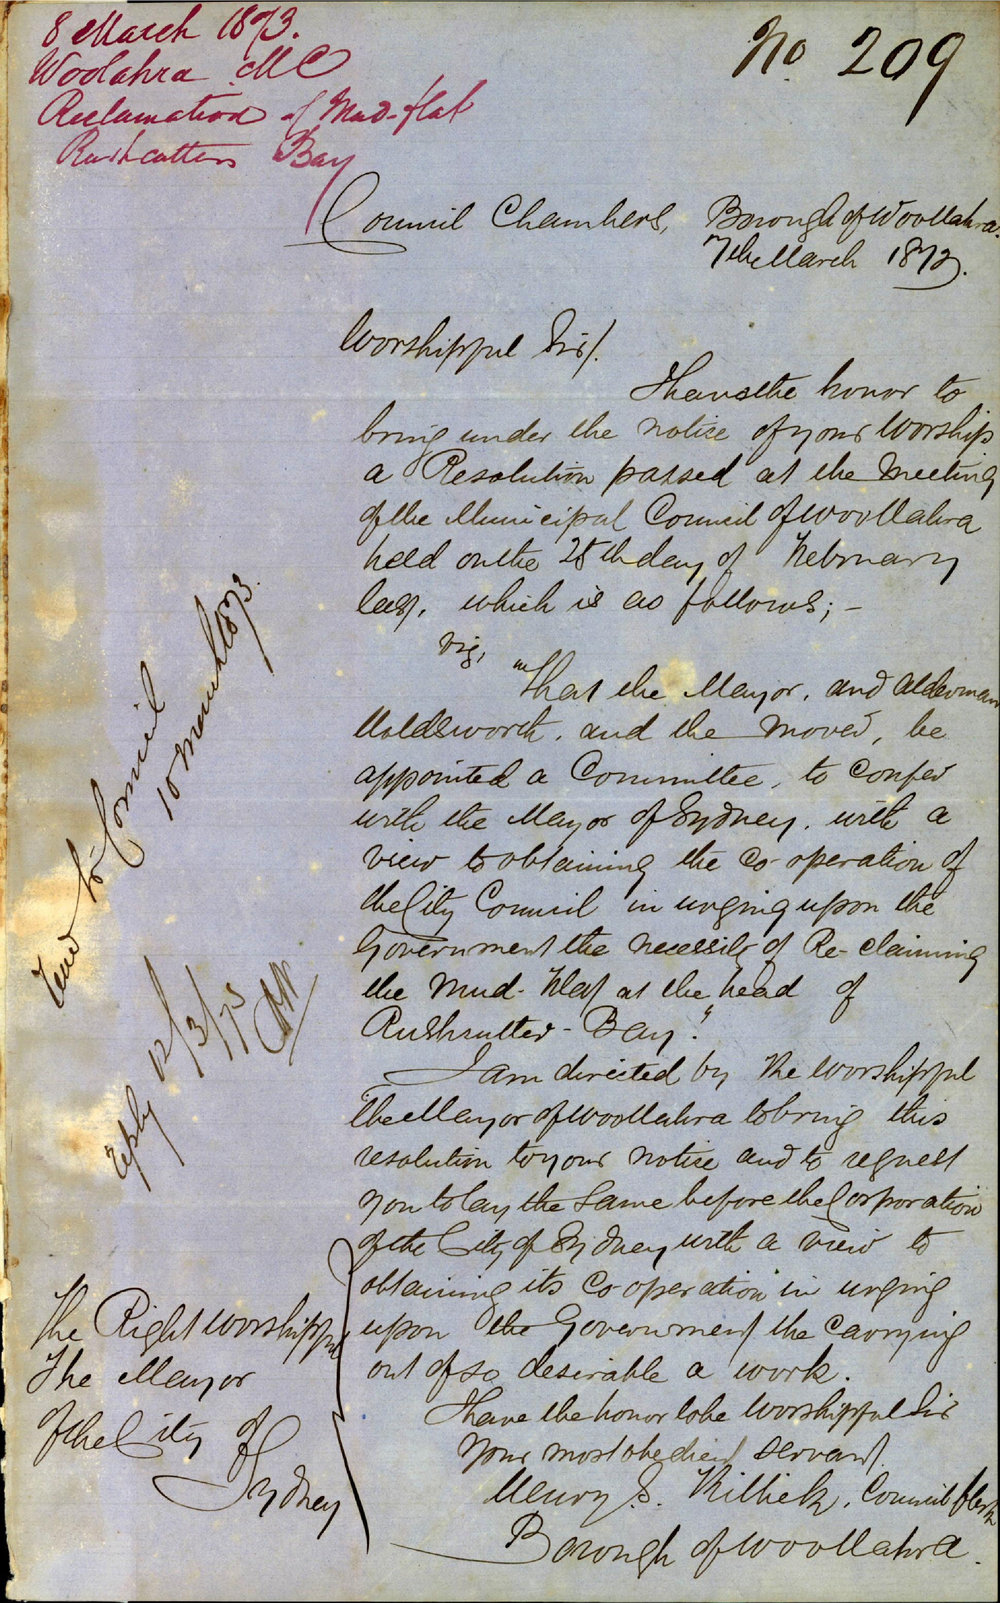 8 March 1873.
Woolahra MC
Reclamation of Mud-flat
Rushcutters Bay
No 209
Council Chambers, Borough of Woollahra.
7th March 1873.
Worshipful Sir/.
I have the honor to
bring under the notice of your Worship
a Resolution passed at the Meeting
of the Municipal Council of Woollahra
held on the 28th day of February
last, which is as follows; -
viz, "That the Mayor, and Alderman
Holdsworth, and the mover, be
appointed a Committee, to confer
with the Mayor of Sydney, with a
view to obtaining the Co-operation of
the City Council in urging upon the
Government the necessity of Re-claiming
the Mud-Flat at the head of
Rushcutter-Bay."
I am directed by the Worshipful
the Mayor of Woollahra to bring this
resolution to your notice and to request
you to lay the same before the Corporation
of the City of Sydney with a view to
obtaining its Co-operation in urging
upon the Government the carrying
out of so desirable a work.
I have the honor to be Worshipful Sir
Your most obedient servant.
Henry S. Killick, Council Clerk
Borough of Woollahra.
The Right Worshipful
The Mayor
of the City of
Sydney
to Council
10 March 1873.
reply 12/3/73